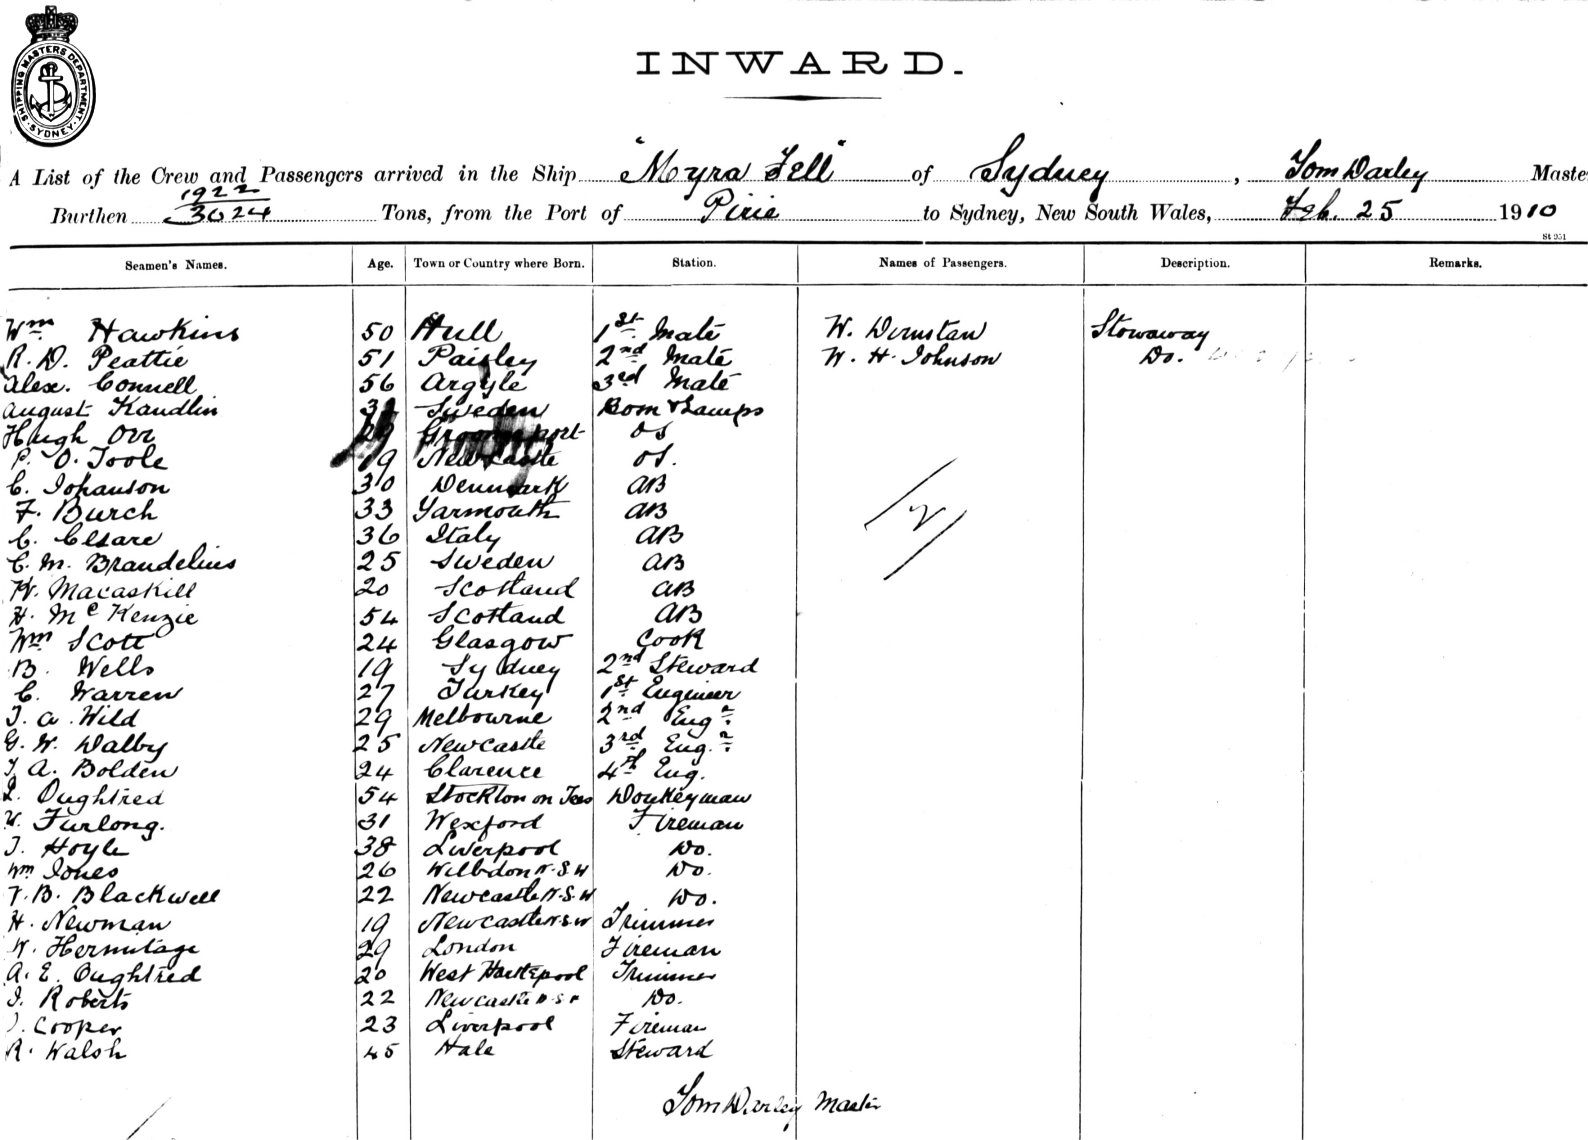 SHIPPING MASTERS DEPARTMENT SYDNEY
INWARD.
A List of the Crew and Passengers arrived in the Ship "Myra Fell" of Sydney, Tom Darley Maste
1922
Burthen 3624 Tons, from the Port of Pirie to Sydney, New South Wales, Feb. 25 1910
St 951
Seamen's Names. Age. Town or Country where Born. Station. Names of Passengers. Description. Remarks.
Wm Hawkins 50 Hull 1st Mate W. Dunstan Stowaway
R. D. Peattie 51 Paisley 2nd Mate W. H. Johnson Do.
Alex. Connell 56 Argyle 3rd Mate
August Kandlin Sweden Bosn & Lamps
Hugh Orr 29 Groomsport OS
P. O. Toole 19 Newcastle OS.
C. Johanson 30 Denmark AB
F. Burch 33 Yarmouth AB
C. Cesare 36 Italy AB
C. M. Brandelius 25 Sweden AB
W. Macaskill 20 Scotland AB
H. McKenzie 54 Scotland AB
Wm Scott 24 Glasgow Cook
B. Wells 19 Sydney 2nd Steward
C. Warren 27 Turkey 1st Engineer
T. A. Wild 29 Melbourne 2nd Engr
G. W. Dalby 25 Newcastle 3rd Engr
T A. Bolden 24 Clarence 4th Eng.
Oughtred 54 Stockton on Tees Donkeyman
W. Furlong. 31 Wexford Fireman
T. Hoyle 38 Liverpool Do.
Wm Jones 26 N.S.W Do.
T. B. Blackwell 22 Newcastle N.S.W Do.
H. Newman 19 Newcastle N.S.W Trimmer
W. Hermitage 29 London Fireman
A. E. Oughtred 20 West Hartlepool Trimmer
J. Roberts 22 Newcastle N.S.W Do.
J. Cooper 23 Liverpool Fireman
R. Walsh 45 Hale Steward
Tom Darley Master